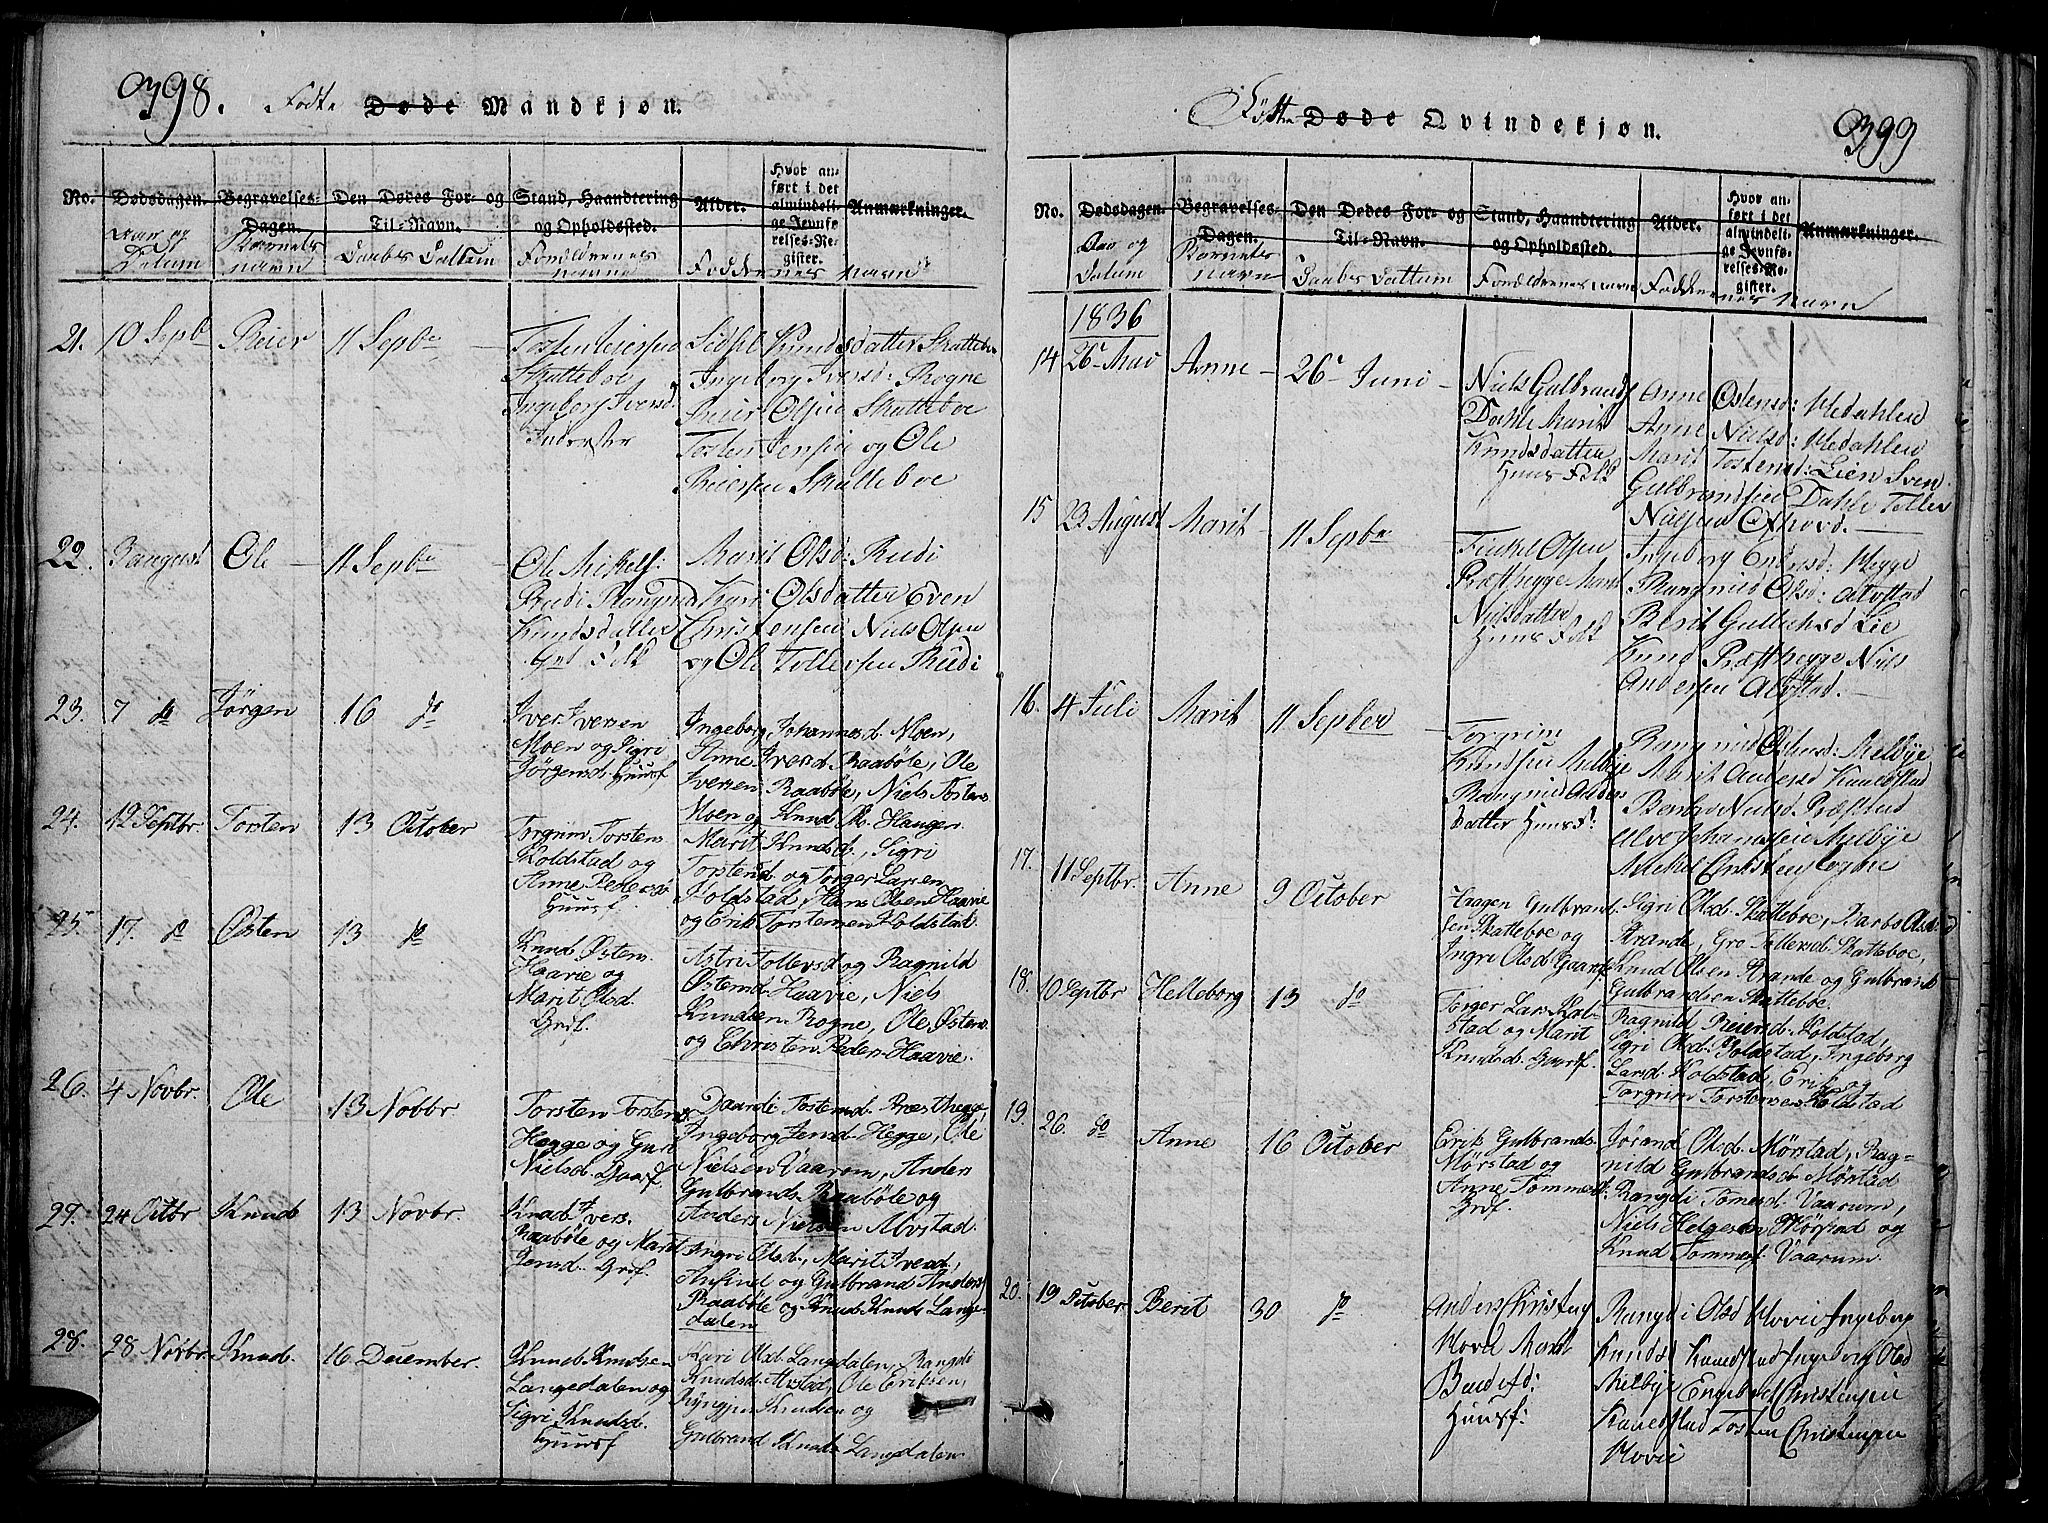 398.
Fødte Døde Mandkjøn.
No. Dødsdagen. Begravelses-Dagen. Den Dødes For- og Til-Navn. Stand, Haandtering og Opholdssted. Alder. Hvor anført i det almindelige Jevnførelses-Register. Anmærkninger.
Aar og Datum Barnets navn Daabs Dattum Forældrenes navne Faddernes navn
21. 10 Sepbr Reier 11 Sepbr
Skatteboe
Ingeborg Iversd.
Sidsel Knudsdatter Skatteboe
Ingeborg Iversd: Rogne
Reier Olsen Skatteboe
Tosten Jensen og Ole
Reiersen Skatteboe
22. Ole 11 Sepbr
Ole Mikels:
Rudi Rangnid
Knudsdatter
Marit Olsd: Rudi
Kari Olsdatter Even
Christensen Niels Olsen
og Ole Tollersen Rudi
23. 7 do Jørgen 16 do
Iver Iversen
Moen og Sigri
Jørgensd. Huusf.
Ingeborg Johannesd. Moen,
Anne Iversd. Raabøle, Ole
Iversen Raabøle, Niels Tostens.
Moen og Knud Haugen.
24. 12 Septbr. Torsten 13 October
Torgrim Torstens.
Holdstad og
Anne Pedersd.
Huusf.
Marit Knudsd., Sigri
Torstensd. og Torger Larsen
Holdstad, Hans Olsen Haavie
og Erik Torstensen Holdstad.
25. 17. do Østen 13 do
Knud Østens.
Haavie og
Marit Olsd.
Grdf.
Astri Tollevsd og Ragnild
Østensd. Haavie, Niels
Knudsen Rogne, Ole Østens.
og Christen Peders. Haavie.
26. 4 Novbr. Ole 13 Novbr
Torsten Torstens.
Hegge og Guri
Nielsd. Gaarf.
Ingeborg Jensd. Hegge, Ole
Nielsen Vaarum, Anders
Gulbrands. Raabøle og
Anders Nielsen Alvstad.
27. 24 Octbr Knud 13 Novbr.
Knud Ivers.
Raabøle og Marit
Jensd. Grdf.
Ingri Olsd., Marit Iversd.,
og Gulbrand Anders.
Raabøle og Knud Knuds. Langedalen
28. 28 Novbr. Knud. 16 December.
Knud Knudsen
Langedalen og
Sigri Knudsd.
Huusf
Kari Olsd. Langdalen, Rangdi
Knudsd. Alvstad, Ole Eriksen,
Knudsen og
Gulbrand Knuds. Langdalen
399
Fødte Døde Qvindekjøn.
No. Dødsdagen. Begravelses-Dagen. Den Dødes For- og Til-Navn. Stand, Haandtering og Opholdssted. Alder. Hvor anført i det almindelige Jevnførelses-Register. Anmærkninger.
Aar og Datum Barnets navn Daabs Dattum Forældrenes navn Faddernes navn
1836
14 26 Mai Anne 26 Juni
Niels Gulbrands
Dahle Marit
Knudsdatter
Huus Folk
Anne Østensd: Medahlen
Anne Nielsd: Medahlen
Marit Tostensd: Lien Sven
Gulbransen Dahle Toller
Nielsen
15 23 August Marit 11 Sepbr
Olsen
Præsthegge Marit
Nielsdatter
Huus Folk
Ingeborg Hegge
Rangnid Olsd: Alvstad
Berit Lie
Knud Præsthegge Niels
Andersen Alvstad.
16. 4 Juli Marit 11 Septber
Torgrim
Knudsen Melbye
Rangnid Anders
Datter Huusf:
Rangnid Melbye
Marit Andersd Kauedstad
Nielsd: Præstad
Melbye
Mikel Christensen
17. 11 Septbr. Anne 9 October
Haagen Gulbrandsen Skatteboe og
Ingri Olsd. Gaarf.
Sigri Olsd. Skatteboe, Barbo Olsd.
Strande, Gro Tollersd. Skatteboe,
Knud Olsen Strande og Gulbrand
Gulbrandsen Skatteboe.
18. 10 Septbr Helleborg 13 do
Torger Lars. Holdstad og Marit
Knudsd. Gaarf.
Ragnild Reiersd. Holdstad,
Sigri Olsd. Holdstad, Ingeborg
Larsd. Holdstad, Erik og
Torgrim Torstensen Holdstad
19. 26. do Anne 16 October
Erik Gulbrands.
Mørstad og
Anne Tommesd.
Grdf.
Jørand Olsd. Mørstad, Ragnild Gulbrandsd. Mørstad
Rangdi Tomesd. Vaarum,
Niels Helgesen Mørstad og
Knud Tommesf. Vaarum.
20. 19 October Berit 30 do
Anders Christens
Hovi Marit
Huusf:
Rangdi Olsd Hovie Ingeborg
Knudsd Kauedstad Ingeborg Olsd
Melbye Engebret Christensen
Kauedstad Tosten Christensen
Hovie